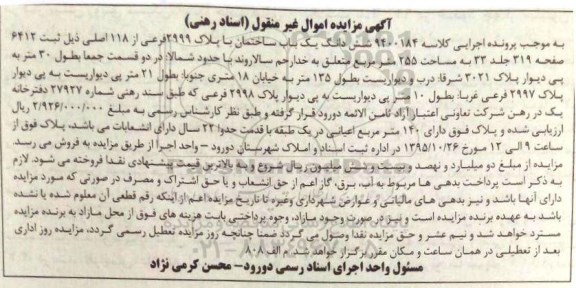 آگهی مزایده اموال غیر منقول (اسناد رهنی)
به موجب پرونده اجرایی کلاسه ۹۴۰۰۱۸۴ شش دانگ یک باب ساختمان با پلاک ۲۹۹۹ فرعی از ۱۱۸ اصلی ذیل ثبت ۶۴۱۲
صفحه ۳۱۹ جلد ۳۳ به مساحت ۲۵۵ متر مربع متعلق به خدارحم سالاروند با حدود شمالا: در دو قسمت جمعا بطول ۳۰ متر به
پی دیوار پلاک ۳۰۲۱ شرقا: درب و دیواریست بطول ۱۳۵ متر به خیابان ۱۸ متری جنوبا: بطول ۲۱ متر پی دیواریست به پی دیوار
پلاک ۲۹۹۷ فرعی غربا: بطول ۱۰ متر پی دیواریست به پی دیوار پلاک ۲۹۹۸ فرعی که طبق سند رهنی شماره ۲۷۹۲۷ دفترخانه
یک در رهن شرکت تعاونی اعتبار آزاد ثامن الائمه دورود قرار گرفته و طبق نظر کارشناس رسمی به مبلغ ۲/۹۲۶/۰۰۰/۰۰۰ ریال
ارزیابی شده و پلاک فوق دارای ۱۴۰ متر مربع اعیانی در یک طبقه با قدمت حدوا ۲۲ سال دارای انشعابات می باشد، پلاک فوق از
ساعت ۹ الی ۱۲ مورخ ۱۳۹۵/۱۰/۲۶ در اداره ثبت اسناد و املاک شهرستان دورود – واحد اجرا از طریق مزایده به فروش می رسد
مزایده از مبلغ دو میلیارد و نهصد و بیست و شش میلیون ریال شروع و به بالاترین قیمت پیشنهادی نقدا فروخته می شود. لازم
به ذکر است پرداخت بدهی ها مربوط به آب، برق، گاز اعم از حق انشعاب و یا حق اشتراک و مصرف در صورتی که مورد مزایده
دارای آنها باشد و نیز بدهی های مالیاتی و عوارض شهرداری وغیره تا تاریخ مزایده اعم از اینکه رقم قطعی آن معلوم شده یا نشده
باشد به عهده برنده مزایده است و نیز در صورت وجود مازاد، وجوه پرداختی بابت هزینه های فوق از محل مازاد به برنده مزایده
مسترد خواهد شد و نیم عشر و حق مزایده نقدا وصول می گردد ضمنا چنانچه روز مزایده تعطیل رسمی گردد، مزایده روز اداری
بعد از تعطیلی در همان ساعت و مکان مقرر برگزار خواهد شد. م الف ۸۰۸
مسئول واحد اجرای اسناد رسمی دورود – محسن کرمی نژاد